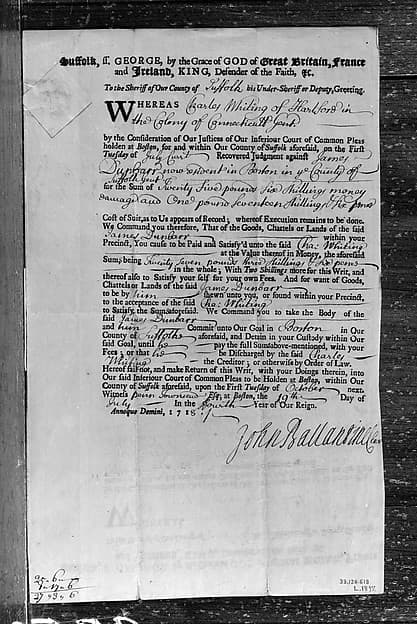 Suffolk, ss. GEORGE, by the Grace of GOD of Great Britain, France
and Ireland, KING, Defender of the Faith, &c.
To the Sheriff of Our County of Suffolk his Under-Sheriff or Deputy, Greeting.
WHEREAS Charles Whiting of Hartford in
the Colony of Connecticutt Gent
by the Consideration of Our Justices of Our Inferiour Court of Common Pleas
holden at Boston, for and within Our County of Suffolk aforesaid, on the First
Tuesday of July Curt Recovered Judgment against James
Dunbarr now resident in Boston in ye County of
Suffolk Gent
for the Sum of Twenty Five pounds Six Shillings money
Damage and One pound Seventeen Shillings & Six pence
Cost of Suit, as to Us appears of Record; whereof Execution remains to be done.
We Command you therefore, That of the Goods, Chattels or Lands of the said
James Dunbarr within your
Precinct, You cause to be Paid and Satisfy'd unto the said Cha: Whiting
at the Value thereof in Money, the aforesaid
Sums, being Twenty Seven pounds three Shillings & Six pence
in the whole; With Two Shillings more for this Writ, and
thereof also to Satisfy your self for your own Fees. And for want of Goods,
Chattels or Lands of the said James Dunbarr
to be by him shewn unto you, or found within your Precinct,
to the acceptance of the said Cha: Whiting
to Satisfy, the Sums aforesaid. We Command you to Take the Body of the
said James Dunbarr
and him Commit unto Our Goal in Boston in Our
County of Suffolk aforesaid, and Detain in your Custody within Our
said Goal, until he pay the full Sums above-mentioned, with your
Fees; or that he be Discharged by the said Charles
Whiting the Creditor; or otherwise by Order of Law.
Hereof fail not, and make Return of this Writ, with your Doings therein, into
Our said Inferiour Court of Common Pleas to be Holden at Boston, within Our
County of Suffolk aforesaid, upon the First Tuesday of October next.
Witness Penn Townsend Esq; at Boston, the 19th Day of
July In the fourth Year of Our Reign.
Annoque Domini, 1718.
John Ballantine Cler
25 . 6
1 . 17 . 6
27 . 3 . 6